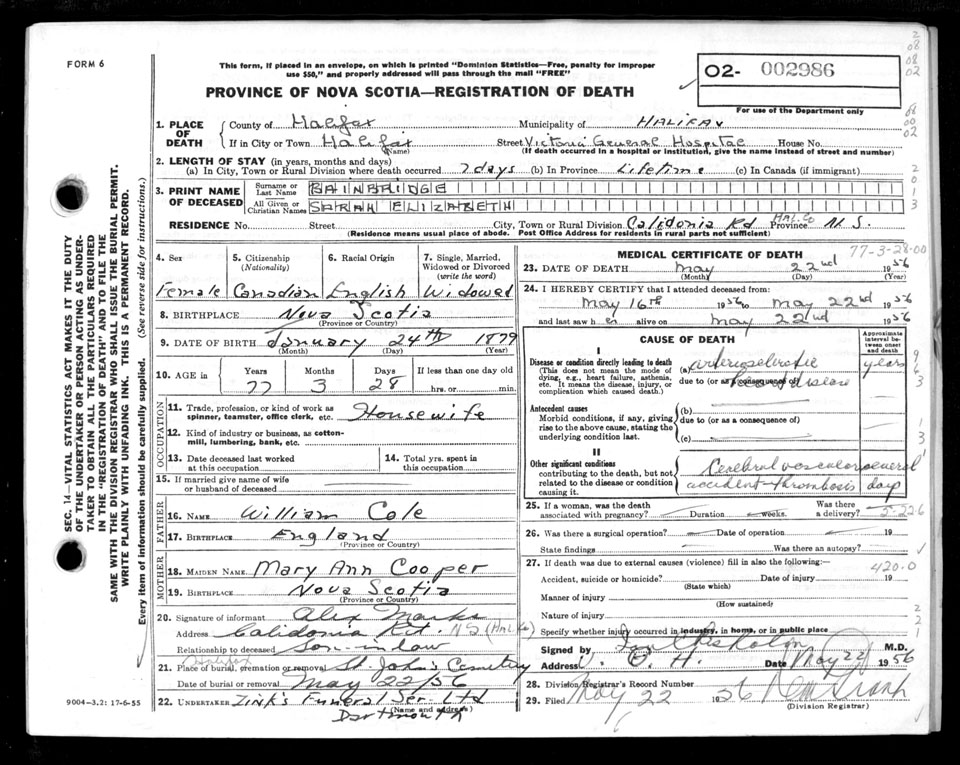 FORM 6
This form, if placed in an envelope, on which is printed "Dominion Statistics—Free, penalty for improper
use $50," and properly addressed will pass through the mail "FREE"
PROVINCE OF NOVA SCOTIA—REGISTRATION OF DEATH
O2- 002986
For use of the Department only
2 08 08 02
08 00 02
2 0 1 3
SEC. 14—VITAL STATISTICS ACT MAKES IT THE DUTY
OF THE UNDERTAKER OR PERSON ACTING AS UNDER-
TAKER TO OBTAIN ALL THE PARTICULARS REQUIRED
IN THE "REGISTRATION OF DEATH" AND TO FILE THE
SAME WITH THE DIVISION REGISTRAR WHO SHALL ISSUE THE BURIAL PERMIT.
WRITE PLAINLY WITH UNFADING INK. THIS IS A PERMANENT RECORD.
Every item of information should be carefully supplied. (See reverse side for instructions.)
1. PLACE OF DEATH
County of Halifax Municipality of HALIFAX
If in City or Town Halifax Street Victoria General Hospital House No.
(Name) (If death occurred in a hospital or institution, give the name instead of street and number)
2. LENGTH OF STAY (in years, months and days)
(a) In City, Town or Rural Division where death occurred 7 days (b) In Province Lifetime (c) In Canada (if immigrant)
3. PRINT NAME OF DECEASED
Surname or Last Name BAINBRIDGE
All Given or Christian Names SARAH ELIZABETH
RESIDENCE No. Street City, Town or Rural Division Calidonia Rd Hal. Co Province N.S.
(Residence means usual place of abode. Post Office Address for residents in rural parts not sufficient)
4. Sex 5. Citizenship (Nationality) 6. Racial Origin 7. Single, Married, Widowed or Divorced (write the word)
Female Canadian English Widowed
8. BIRTHPLACE Nova Scotia
(Province or Country)
9. DATE OF BIRTH January 24th 1879
(Month) (Day) (Year)
10. AGE in Years Months Days If less than one day old
77 3 28 hrs. or min.
OCCUPATION
11. Trade, profession, or kind of work as spinner, teamster, office clerk, etc. Housewife
12. Kind of industry or business, as cotton-mill, lumbering, bank, etc.
13. Date deceased last worked at this occupation
14. Total yrs. spent in this occupation
15. If married give name of wife or husband of deceased
FATHER
16. NAME William Cole
17. BIRTHPLACE England
(Province or Country)
MOTHER
18. MAIDEN NAME Mary Ann Cooper
19. BIRTHPLACE Nova Scotia
(Province or Country)
20. Signature of informant Alex Marks
Address Calidonia Rd. N S (Halifax)
Relationship to deceased Son-in-law
Halifax
21. Place of burial, cremation or removal St. John's Cemetery
Date of burial or removal May 22/56
22. UNDERTAKER Zink's Funeral Ser. Ltd
(Name and address)
Dartmouth
9004-3.2: 17-6-55
MEDICAL CERTIFICATE OF DEATH 77-3-28-00
23. DATE OF DEATH May 22nd 1956
(Month) (Day) (Year)
24. I HEREBY CERTIFY that I attended deceased from:
May 16th 1956 to May 22nd 1956
and last saw her alive on May 22nd 1956
CAUSE OF DEATH
Approximate interval between onset and death
I
Disease or condition directly leading to death
(This does not mean the mode of dying, e.g., heart failure, asthenia, etc. It means the disease, injury, or complication which caused death.)
(a) arteriosclerotic years
due to (or as a consequence of) heart disease
Antecedent causes
Morbid conditions, if any, giving rise to the above cause, stating the underlying condition last.
(b)
due to (or as a consequence of)
(c)
II
Other significant conditions contributing to the death, but not related to the disease or condition causing it.
Cerebral vascular several
accident - thrombosis days
25. If a woman, was the death associated with pregnancy? Duration weeks. Was there a delivery?
26. Was there a surgical operation? Date of operation 19
State findings Was there an autopsy?
27. If death was due to external causes (violence) fill in also the following:— 420.0
Accident, suicide or homicide? Date of injury 19
(State which)
Manner of injury
(How sustained)
Nature of injury
Specify whether injury occurred in industry, in home, or in public place
Signed by Chisholm M.D.
Address V. G. H. Date May 22 1956
28. Division Registrar's Record Number
29. Filed May 22 1956
(Division Registrar)